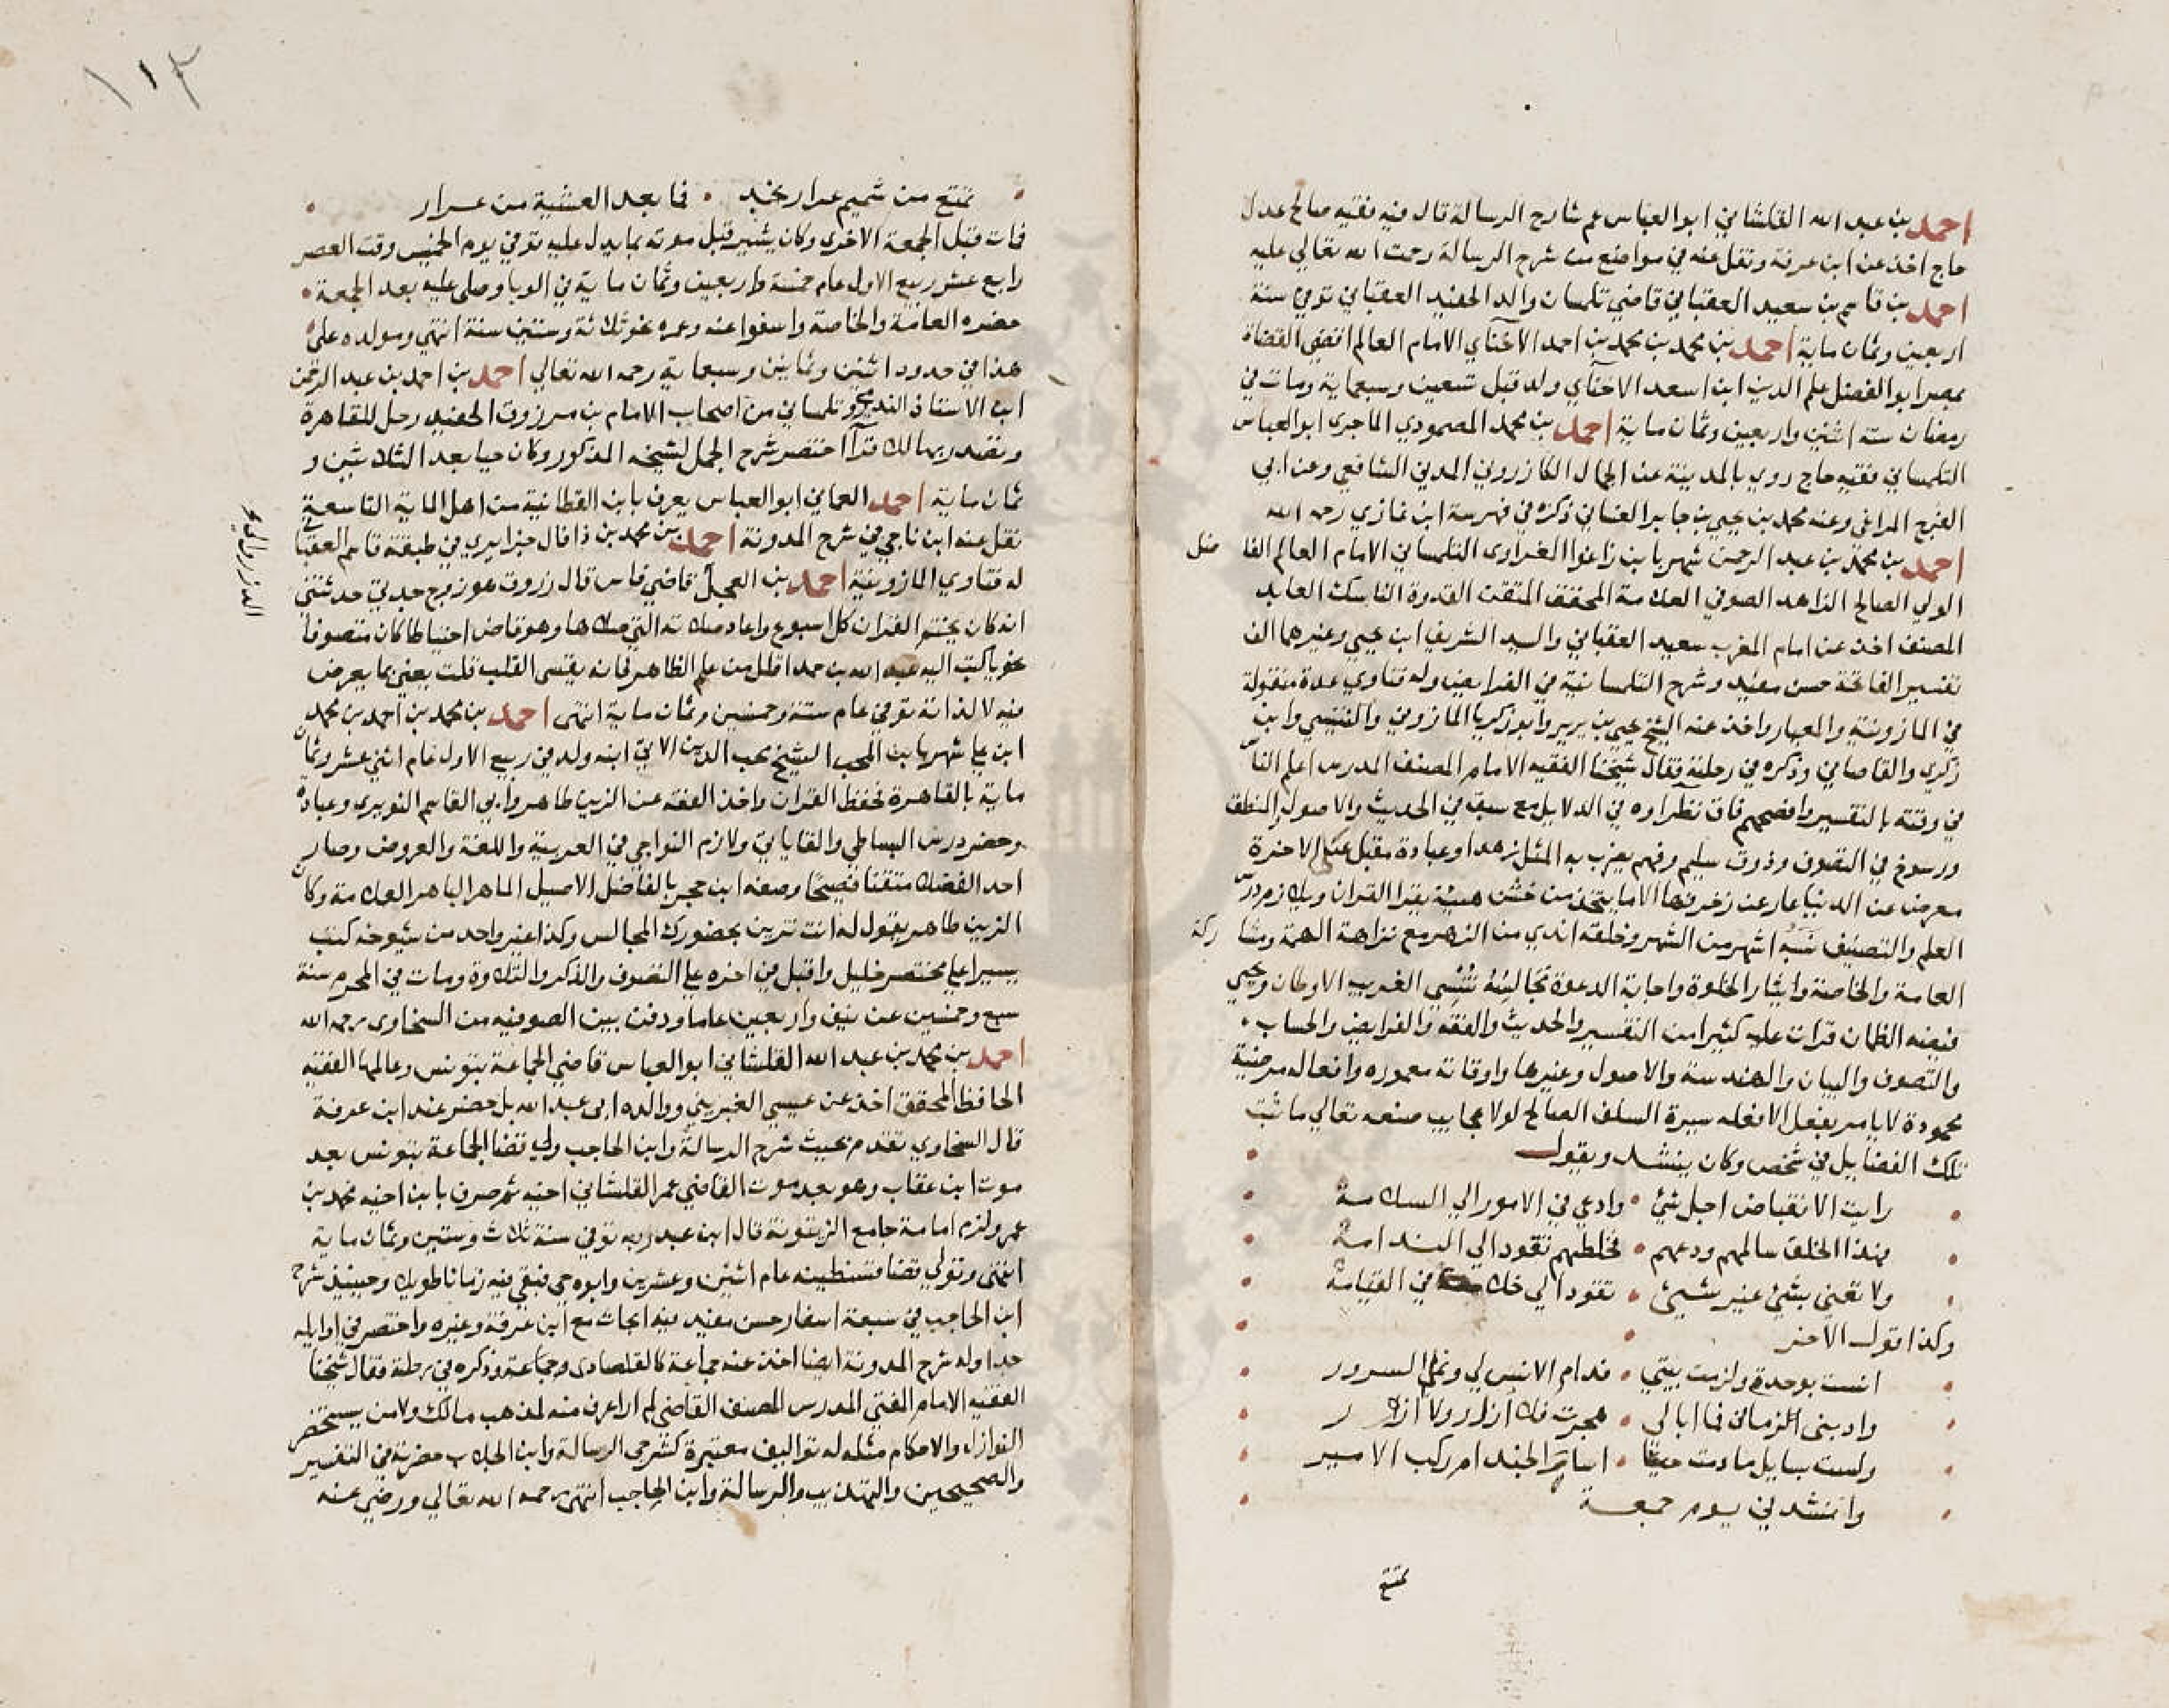 احمد بن عبد الله القلشاني ابو العباس عم شارح الرسالة قال فيه فقيه صالح عدل
حاج اخذ عن ابن عرفة ونقل عنه في مواضع من شرح الرسالة رحمت الله تعالي عليه
احمد بن قاسم بن سعيد العقباني قاضي تلمسان والد الحفيد العقباني توفي سنة
اربعين وثمان ماية احمد بن محمد بن محمد بن احمد الاخناي الامام العالم اقضى القضاة
بمصر ابو الفضل علم الدين ابن اسعد الاخناي ولد قبل تسعين وسبعماية ومات في
رمضان سنة اثنين واربعين وثمان ماية احمد بن محمد المصمودي الماجرى ابو العباس
التلمساني فقيه حاج روي بالمدينة عن الجمال الكازروني المدني الشافعي وعن ابي
الفرج المراغي وعنه محمد بن يحيي بن جابر الغساني ذكره في فهرسة ابن غازي رحمه الله
احمد بن محمد بن عبد الرحمن شهر بابن زاغوا المغراوى التلمساني الامام العالم الفا ضل
الولي الصالح الزاهد الصوفي العلامة المحقق المتقن القدوة الناسك العابد
المصنف اخذ عن امام المغرب سعيد العقباني والسيد الشريف ابن يحيي وغيرهما الف
تفسير الفاتحة حسن مفيد وشرح التلمسانية في الفرايض وله فتاوي عدة منقولة
في المازونية والمعيار واخذ عنه الشيخ يحيي بن يرير وابو زكريا المازوني والتنسي وابن
زكري والقلصاني وذكره في رحلته فقال شيخنا الفقيه الامام المصنف المدرس اعلم الناس
في وقته بالتفسير وافصحهم فاق نظراوه في الدلايل مع سبق في الحديث والاصول والمنطق
ورسوخ في التصوف وذوق سليم وفهم يضرب به المثل زهدا وعبادة مقبل على الاخرة
معرض عن الدنيا عار عن زخرفها الا ما يتخذ من خشن هيئة يقرا القران ويلازم درس
العلم والتصنيف نسبه اشهر من الشهر وخلقه اندي من الزهر مع نزاهة الهمة ومشا ركة
العامة والخاصة وايثار الخلوة واجابة الدعوة مجالسته تنسي الغريب الاوطان ويحيي
فيضه الظمان قرات عليه كثيرا من التفسير والحديث والفقه والفرايض والحساب
والتصوف والبيان والهندسة والاصول وغيرها واوقاته معموره وافعاله مرضية
محمودة لا يامر بفعل الا فعله سيرة السلف الصالح لولا عجايب صنعه تعالي ما ثبت
تلك الفضايل في شخص وكان ينشد ويقول
رايت الانقباض اجل شيئ • وادعي في الامور الي السلامة
فهذا الخلق سالمهم ودعهم • فخلطهم تقود الي الندامة
ولا تعني بشيئ غير شيئ • تقود الي في القيامة
وكذا قول الاخر
انست بوحدة ولزمت بيتي • فدام الانس لي ونما السرور
وادبني الزمان فما ابالي • هجرت فلا ازار ولا ازور
ولست بسايل ما دمت حيا • اسار الجند ام ركب الامير
وانشدني يوم جمعة
تمتع
١١٣
تمتع من شميم عرار نجد • فما بعد العشية من عرار
فمات قبل الجمعة الاخرى وكان يشير قبل موته بما يدل عليه توفي يوم الخميس وقت العصر
رابع عشر ربيع الاول عام خمسة واربعين وثمان ماية في الوبا وصلي عليه بعد الجمعة
حضره العامة والخاصة واسفوا عنه وعمره نحو ثلاثة وستين سنة انتهي ومولده على
هذا في حدود اثنين وثمانين وسبعماية رحمه الله تعالي احمد بن احمد بن عبد الرحمن
ابن الاستاذ وتلمساني من اصحاب الامام بن مرزوق الحفيد رحل للقاهرة
اختصر شرح الجمل لشيخه المذكور وكان حيا بعد الثلاثين و
ثمان ماية احمد العماني ابو العباس يعرف بابن القطانية من اهل الماية التاسعة
نقل عنه ابن ناجي في شرح المدونة احمد بن محمد بن ذافال جزايري في طبقة قاسم العقباني
له فتاوي المازونية احمد بن العجل قاضي فاس قال زروق هو زوج جدتي حدثتني
انه كان يختم القران كل اسبوع واعاد صلاته التي صلاها وهو قاض احتياطا كان متصوفا
نحويا كتب اليه عبد الله بن حمد اقلل من علم الظاهر فانه يقسى القلب قلت يعني بما يعرض
فيه لا لذاته توفي عام ستة وخمسين وثمان ماية انتهى احمد بن محمد بن احمد بن محمد
ابن علي شهر بابن المحب الشيخ محب الدين الاتي ابنه ولد في ربيع الاول عام اثني عشر وثمان
ماية بالقاهرة فحفظ القران واخذ الفقه عن الزين طاهر وابي القاسم النويري وعبادة
وحضر درس البساطي والقاياتي ولازم النواجي في العربية واللغة والعروض وصار
احد الفضلا متقنا فصيحا وصفه ابن حجر بالفاضل الاصيل الماهر الباهر العلامة وكان
الزين طاهر يقول له انت تزين بحضورك المجالس وكذا غير واحد من شيوخه كتب
يسيرا علي مختصر خليل واقبل في اخره علي التصوف والذكر والتلاوة ومات في المحرم سنة
سبع وخمسين عن نيف واربعين عاما ودفن بين الصوفيه من السخاوى رحمه الله
احمد بن محمد بن عبد الله القلشاني ابو العباس قاضي الجماعة بتونس وعالمها الفقيه
الحافظ المحقق اخذ عن عيسي الغبريني ووالده ابى عبد الله بل حضر عند ابن عرفة
قال السخاوي تقدم بحيث شرح الرسالة وابن الحاجب ولي قضا الجماعة بتونس بعد
موت ابن عقاب وهو بعد موت القاضي عمر القلشاني اخيه ثم صرف بابن اخيه محمد بن
عمر ولزم امامة جامع الزيتونة قال ابن عبد ربه توفي سنة ثلاث وستين وثمان ماية
انتهى وتولي قضا قسنطينه عام اثنين وعشرين وابوه حي فبقي فيه زمانا طويلا وحينيذ شرح
ابن الحاجب في سبعة اسفار حسن مفيد فيه ابحاث مع ابن عرفة وغيره واختصر في اوايله
جدا وله شرح المدونة ايضا اخذ عنه جماعة كالقلصادى وجماعة وذكره في رحلته فقال شيخنا
الفقيه الامام المفتي المدرس المصنف القاضي لم ار اعرف منه لمذهب مالك ولا من يستحضر
النوازل والاحكام مثله له تواليف معتبرة كشرحي الرسالة وابن الجلاب حضرته في التفسير
والصحيحين والتهذيب والرسالة وابن الحاجب انتهى رحمه الله تعالي ورضي عنه